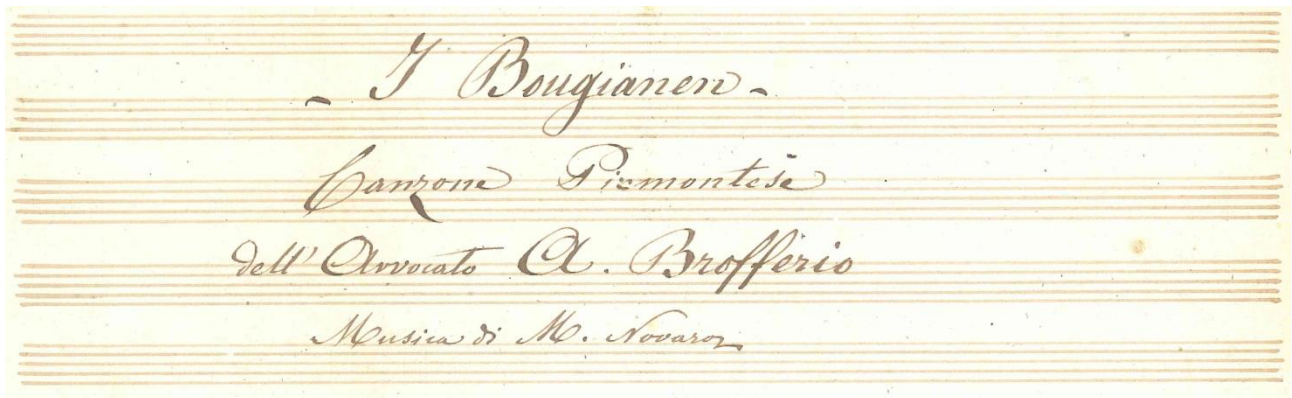 - I Bougianen -
Canzone Piemontese
dell' Avvocato A. Brofferio
Musica di M. Novaro